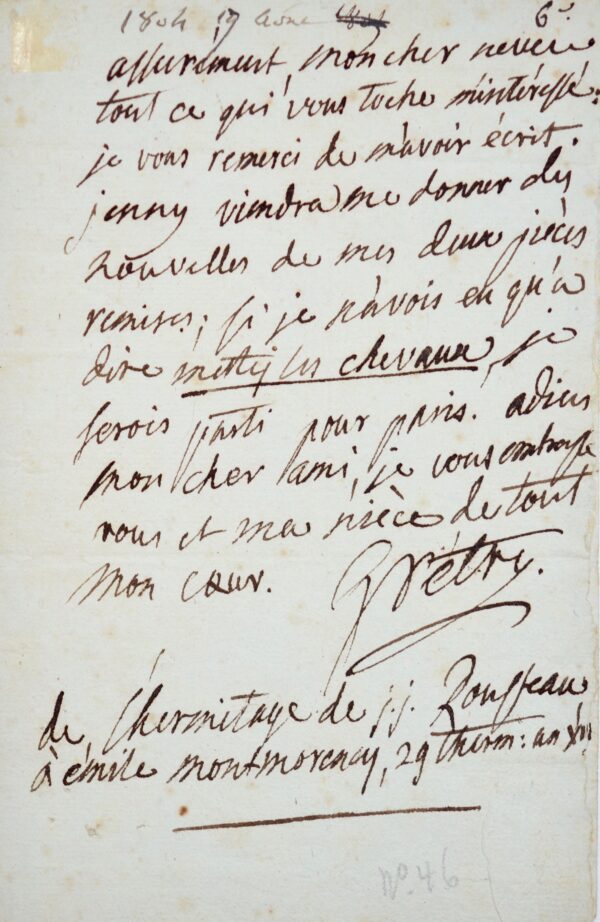 1804 17 Aout
6
assurement, mon cher neveu
tout ce qui vous toche m'intéresse.
je vous remerci de m'avoir écrit.
jenny viendra me donner des
nouvelles de mes deux pièces
remises; si je n'avois eu qu'a
dire mettez les chevaux, je
serois parti pour paris. adieu
mon cher ami, je vous embrasse
vous et ma nièce de tout
mon cœur. Grétry.
de l'hermitage de j.j. Rousseau
à émile montmorency, 29 therm: an
No. 46